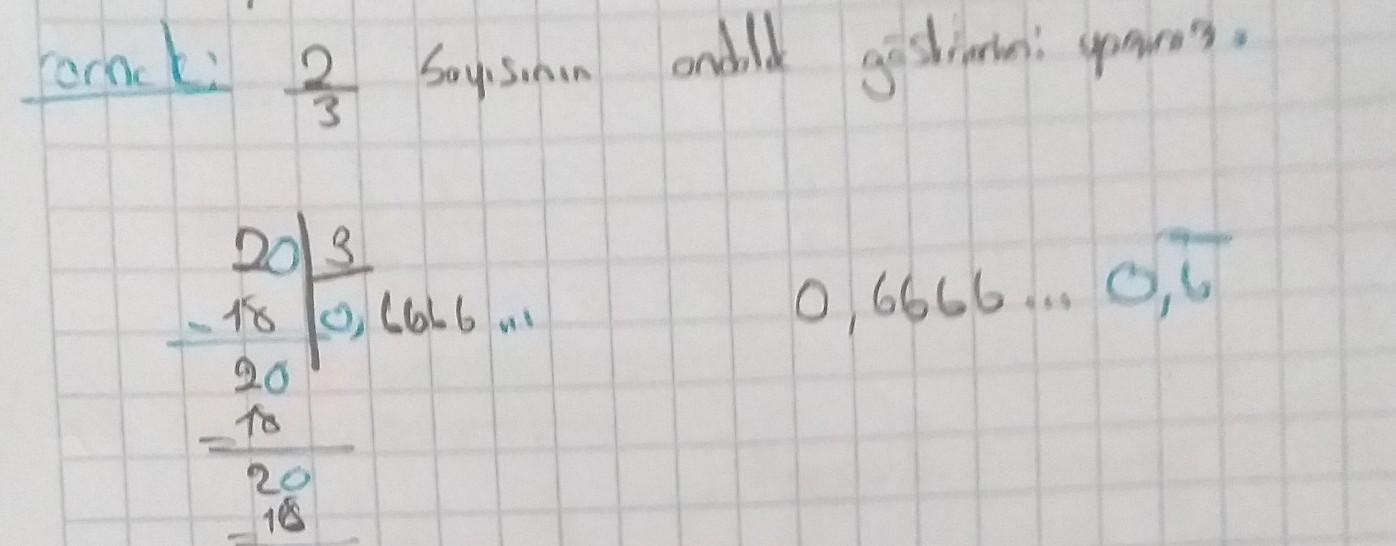 örnek: 2/3 Sayısının ondalık gösterimini yapınız.
20 | 3
- 18 | 0,6666 ...
20
- 18
20
- 18
0,6666 ... 0,6̅